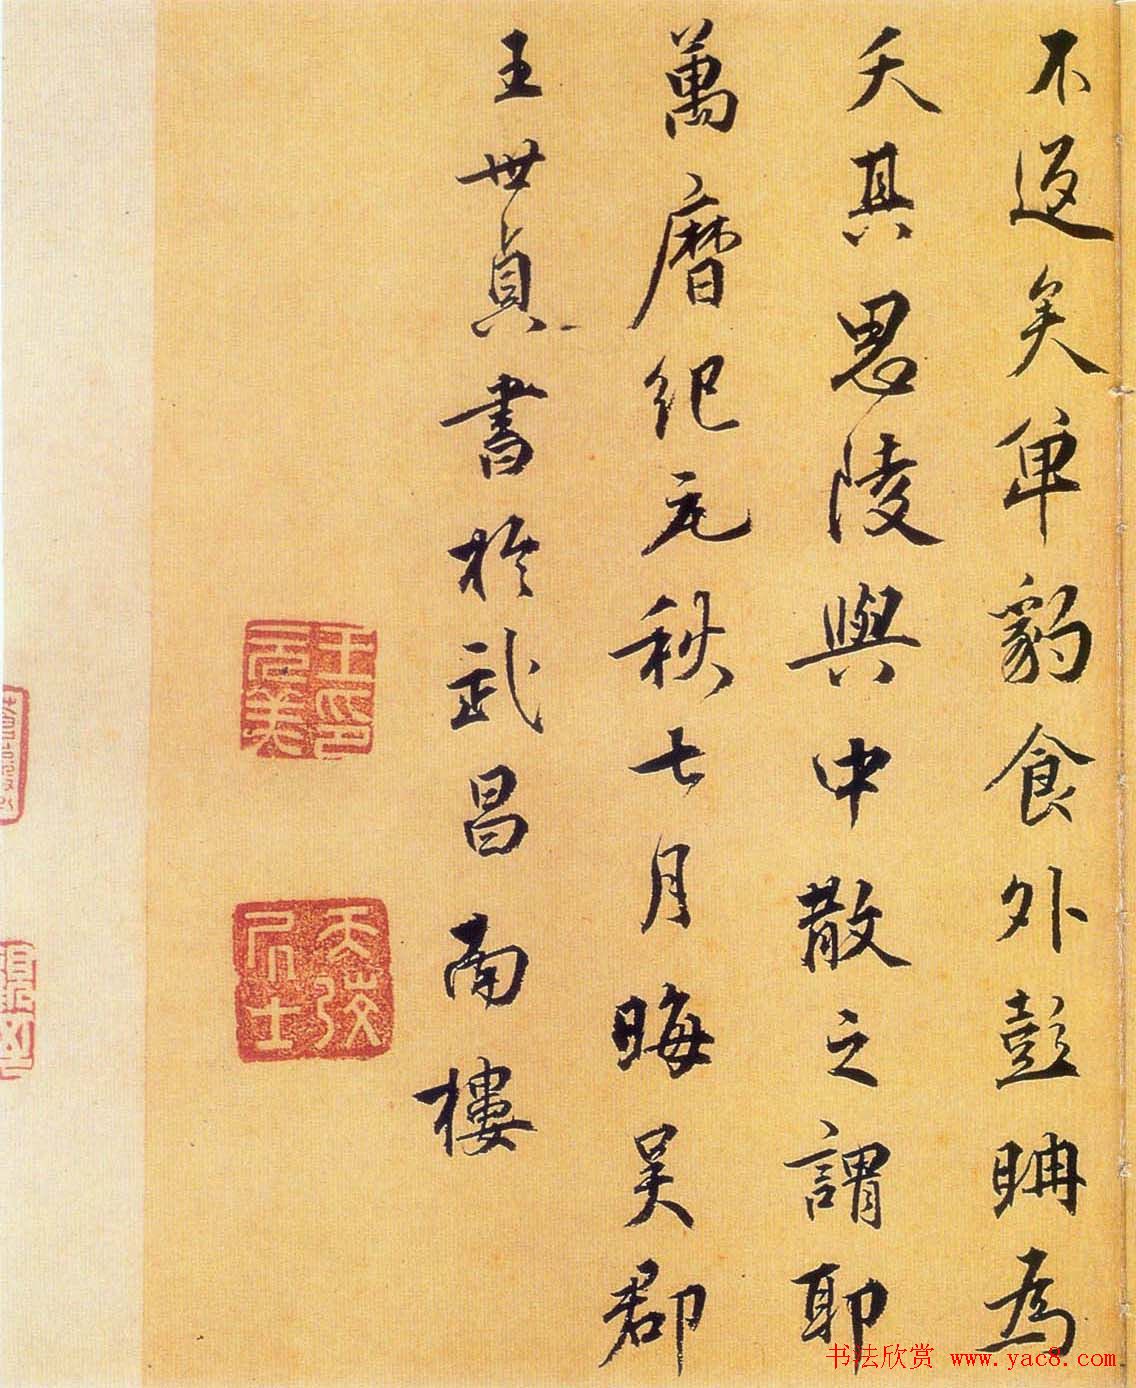 不返矣單豹食外彭聃為
夭其思陵與中散之謂耶
萬曆紀元秋七月晦吳郡
王世貞書於武昌南樓
王印元美
天弢居士
书法欣赏 www.yac8.com